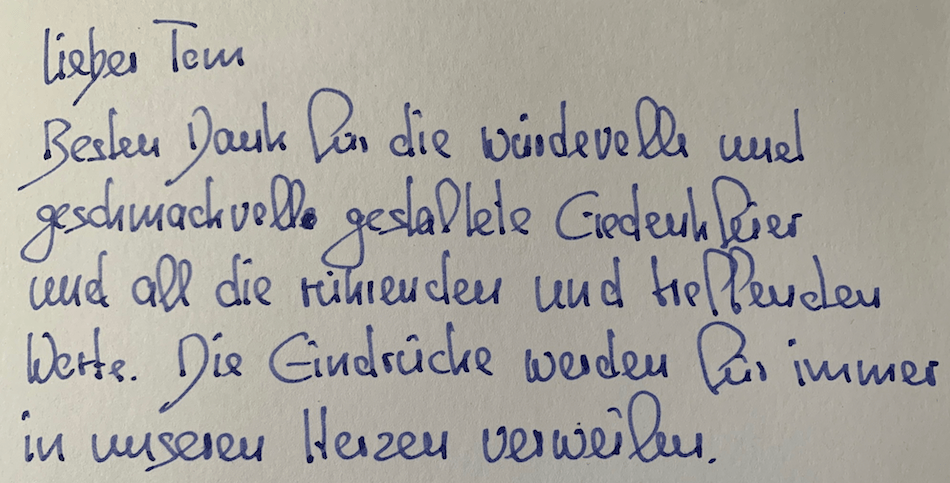 Lieber Tom
Besten Dank für die würdevolle und
geschmackvoll gestaltete Gedenkfeier
und all die rührenden und treffenden
Worte. Die Eindrücke werden für immer
in unseren Herzen verweilen.